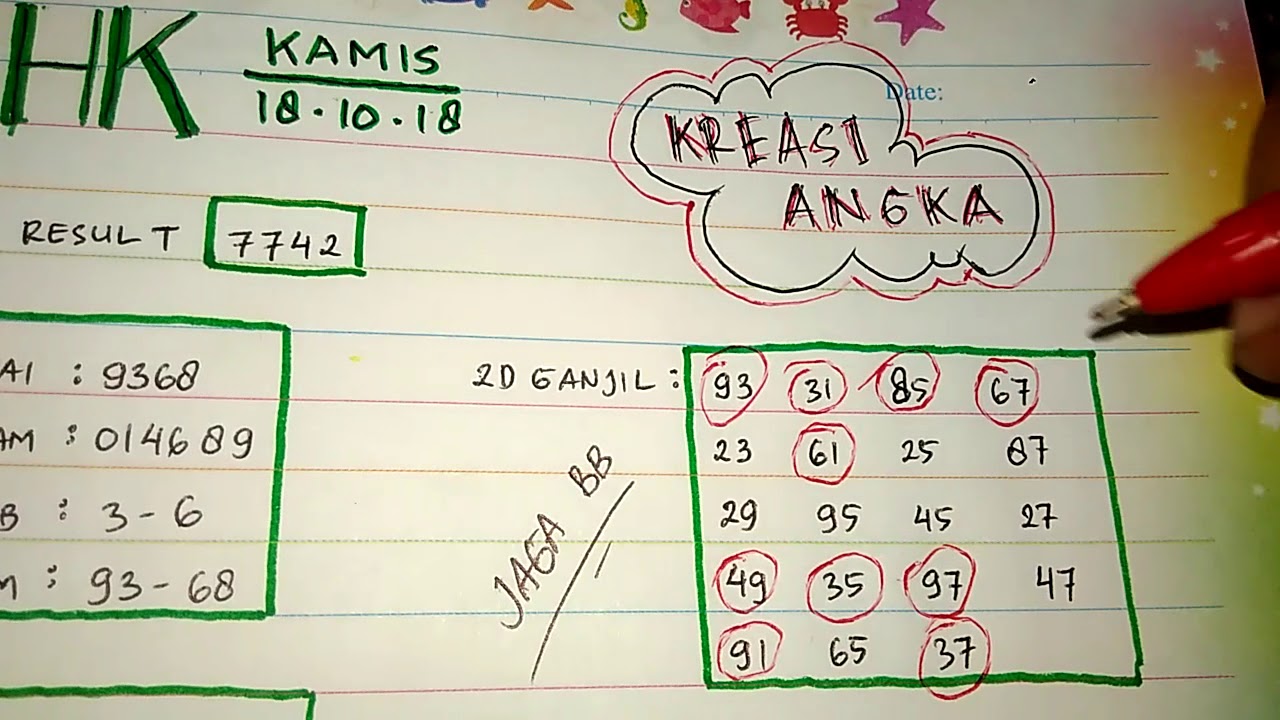 HK KAMIS
18.10.18
Date:
KREASI
ANGKA
RESULT 7742
AI : 9368
AM : 014689
B : 3-6
M : 93-68
2D GANJIL : 93 31 85 67
23 61 25 87
29 95 45 27
49 35 97 47
91 65 37
JAGA BB